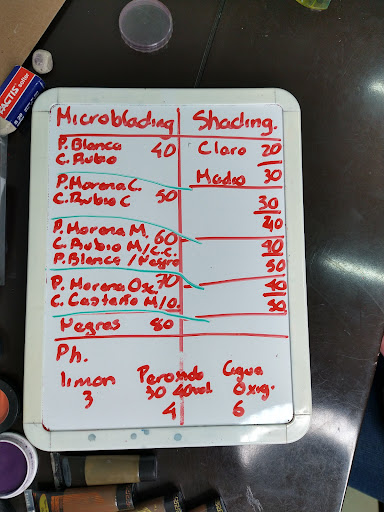 FACTIS
Microblading Shading.
P. Blanca 40 Claro 20
C. Rubio
Medio 30
P. Morena C.
C. Rubio C 50 30
40
P. Morena M. 60
C. Rubio M/C.C. 40
P. Blanca / Negro 50
P. Morena Osc. 70 40
C. Castaño M/O. 50
Negras 80
Ph.
limon Peroxido Agua
3 30 40vol Oxig.
4 6